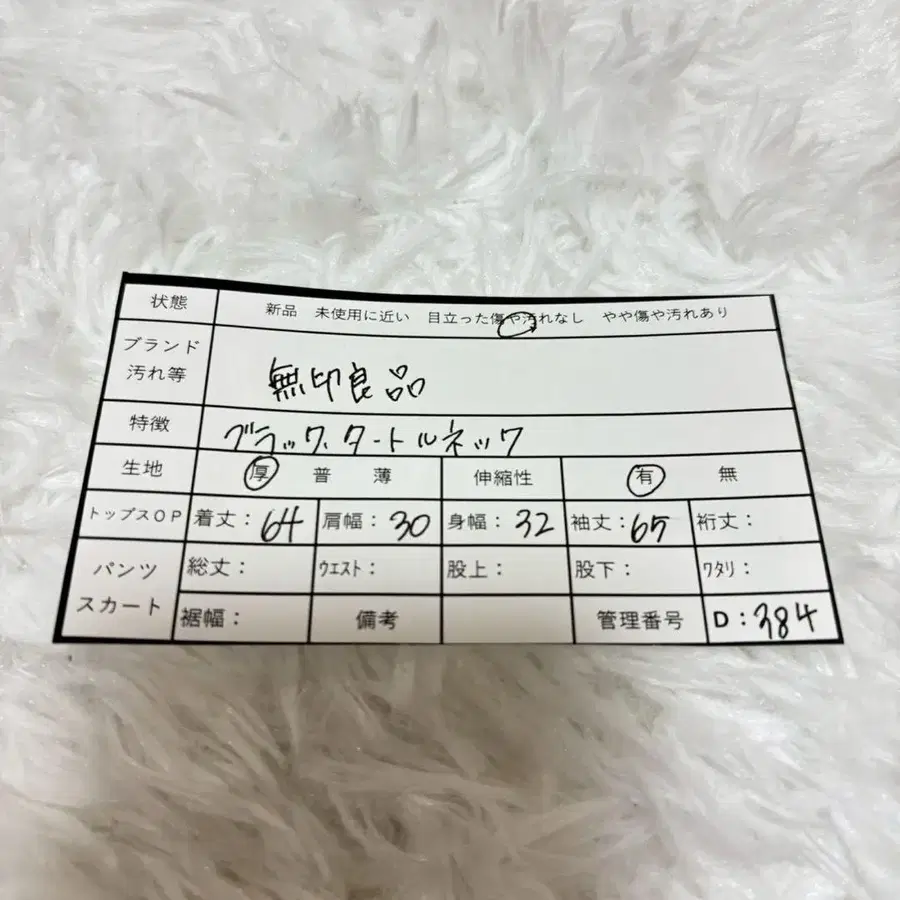 状態 新品 未使用に近い 目立った傷や汚れなし やや傷や汚れあり
ブランド
汚れ等 無印良品
特徴 ブラック、タートルネック
生地 厚 普 薄 伸縮性 有 無
トップスOP 着丈：64 肩幅：30 身幅：32 袖丈：65 裄丈：
パンツ
スカート 総丈： ｳｴｽﾄ： 股上： 股下： ﾜﾀﾘ：
裾幅： 備考 管理番号 D：384